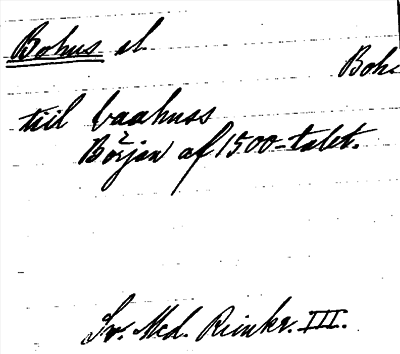 Bohus sl
Bohs
till baahuss
Början af 1500-talet.
Sv. Med. Rimkr. III.